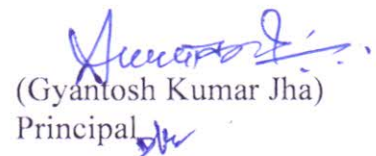 (Gyantosh Kumar Jha)
Principal